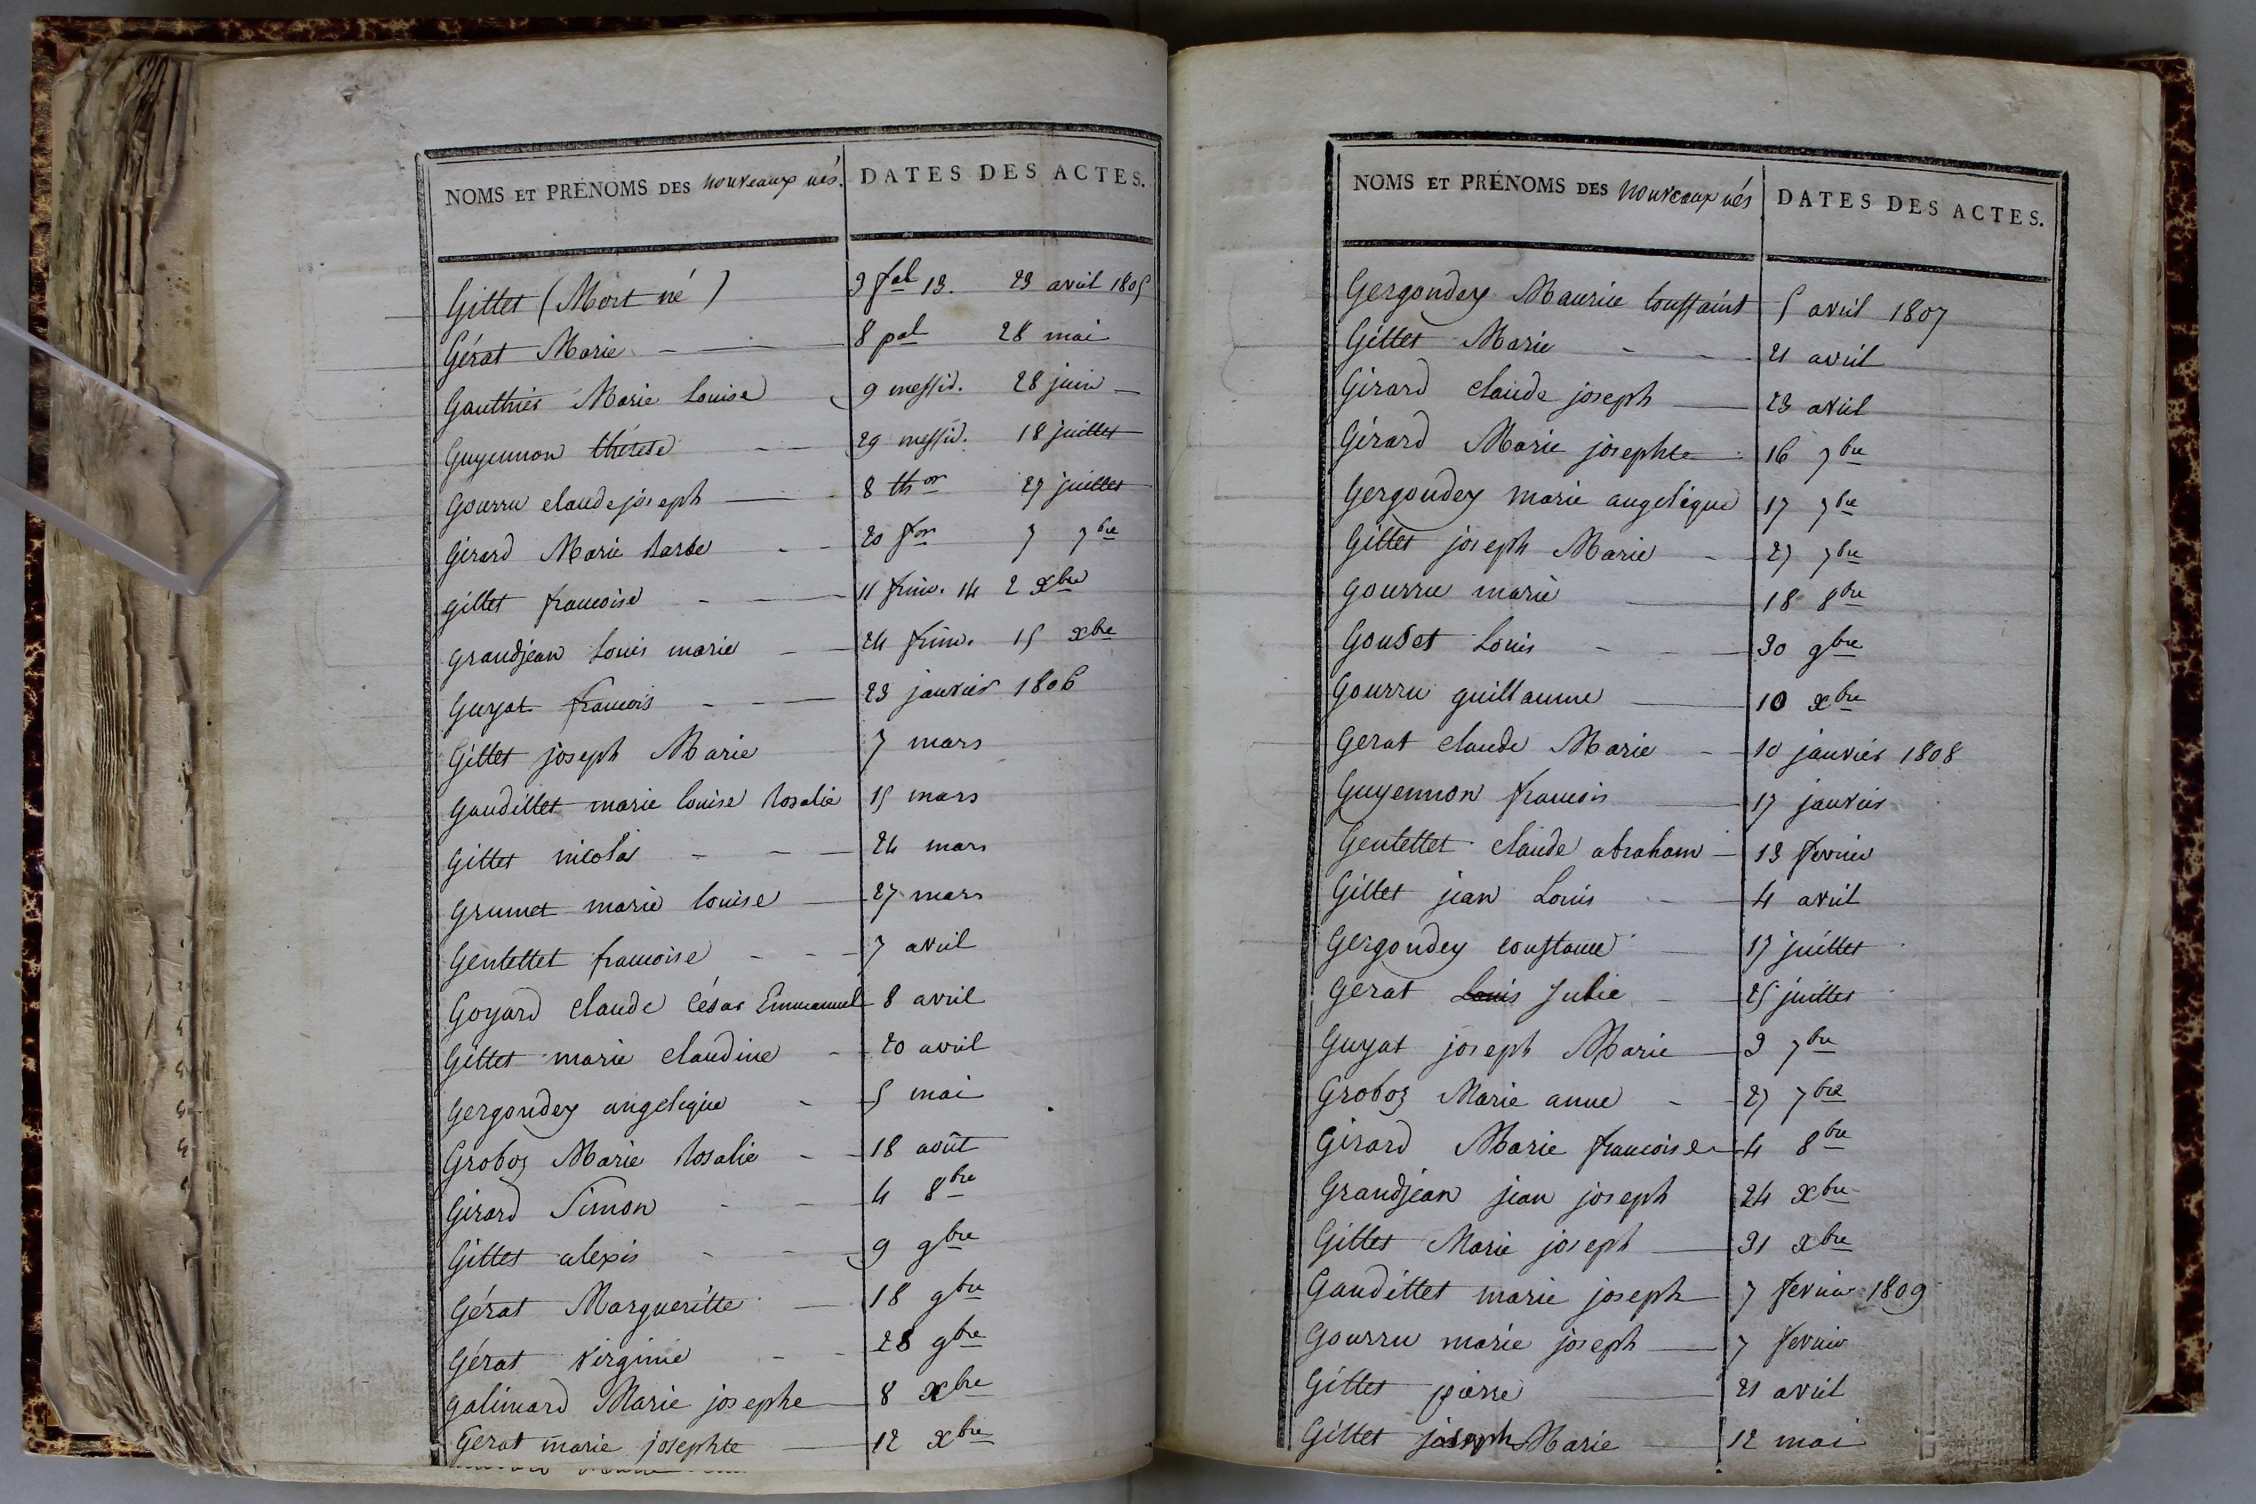 NOMS ET PRÉNOMS DES nouveaux nés. DATES DES ACTES.
Gillet (Mort né) 3 fal 13. 23 avril 1805
Gérat Marie 8 pal 28 mai
Gauthier Marie Louise 9 messid. 28 juin
Guyennon thérèse 29 messid. 18 juillet
Gourru claude joseph 8 thor 27 juillet
Girard Marie barbe 20 for 7 7bre
gillet francoise 11 frim. 14 2 xbre
grandjean Louis marie 24 frim. 15 xbre
Guyat francois 23 janvier 1806
Gillet joseph Marie 7 mars
Gaudillet marie louise Rosalie 15 mars
Gillet nicolas 24 mars
Grumet marie louise 27 mars
Gentellet francoise 7 avril
Goyard claude César Emmanuel 8 avril
Gillet marie claudine 20 avril
Gergondey angelique 5 mai
Groboz Marie Rosalie 18 août
Girard Simon 4 8bre
Gillet alexis 9 gbre
Gérat Margueritte 18 gbre
Gérat virginie 28 gbre
galimard Marie josephe 8 xbre
Gerat marie josephte 12 xbre
NOMS ET PRÉNOMS DES nouveaux nés DATES DES ACTES.
Gergondey Maurice toussaint 5 avril 1807
Gillet Marie 21 avril
Girard claude joseph 23 avril
Girard Marie josephte 16 7bre
Gergondey marie angelique 17 7bre
Gillet joseph Marie 27 7bre
Gourru marie 18 8bre
Goudet Louis 30 gbre
Gourru guillaume 10 xbre
Gerat claude Marie 10 janvier 1808
Guyennon francois 17 janvier
Gentellet claude abraham 13 fevrier
Gillet jean Louis 4 avril
Gergondey constance 17 juillet
Gerat Louis Julie 25 juillet
Guyat joseph Marie 3 7bre
Groboz Marie anne 27 7bre
Girard Marie francoise 4 8bre
Grandjean jean joseph 24 xbre
Gillet Marie joseph 31 xbre
Gaudillet marie joseph 7 fevrier 1809
Gourru marie joseph 7 fevrier
Gillet pierre 21 avril
Gillet joseph Marie 12 mai